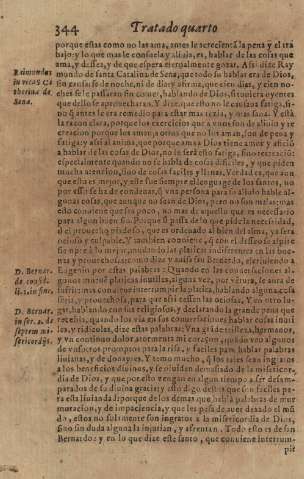 344 Tratado quarto
porque estas como no las ama, antes le acrecientã la pena y el tra
bajo: y lo que mas le consuela y alivia, es, hablar de las cosas que
ama, y dessea, y de que espera eternalmente gozar. Assi dize Ray
mundo de santa Catalina de Sena, que todo su hablar era de Dios,
sin cansarse de noche, ni de dia: y afirma, que cien dias, y cien no-
ches se le passaran sin comer, hablando de Dios, si tuviera oyentes
que dello se aprovecharan. Y dize, que esto no le causava fatiga, si-
no que antes le era remedio para estar mas rezia, y mas sana. Y está
la razon clara, porque los exercicios que a unos son de alivio y re
creacion porque los aman; a otros que no los aman, son de pena y
fatiga: y assi al anima, que porque ama a Dios tiene amor y aficiõ
a hablar de las cosas de Dios, no le será esto fatiga, sino recreació:
especialmente quando no se habla de cosas dificiles, y que piden
mucha atencion, sino de cosas faciles y llanas. Verdad es, que aun
que esta es mejor, y este sue siempre el lenguage de los santos,
no por esso se ha de condenar, q una persona para su alivio hable al-
gunas cosas, que aunque no sean de Dios, pero no son malas: mas
esto conviene que sea poco, no mas de aquello que es necessario
para algun buen fin. Porque si passa de lo que pide la necessidad,
o el provecho piadoso, que es ordenado al bien del alma, ya sera
ocioso y culpable. Y tambien conviene, q con el desseo se aspire
siempre à lo mejor, mudando las platicas indiferentes en las bue-
nas y provechosas. Todo esto nos avisó san Bernardo, escriviendo à
Eugenio por estas palabras: Quando en las conversaciones al-
gunos mueven platicas inutiles, alguna vez, por ventura, se aura de
sufrir: mas conviene interrumpir las platicas, hablando alguna cosa
seria, y provechosa, para que assi cessen las ociosas. Y en otro lu-
gar, hablando con sus religiosos, y declarando la grande pena que
recebia, quando los veia en sus conversaciones hablar cosas inuti
les, y ridiculas, dize estas palabras: Una grãde tristeza, hermanos,
y un continuo dolor atormenta mi coraçon, quãdo veo algunos
de vosotros promptos para la risa, y faciles para hablar palabras
livianas, y de donayres. Y temo mucho, q los tales sean ingratos
a los beneficios divinos, y se olviden demasiado de la misericor-
dia de Dios, y que por esso vengan en algun tiempo a ser desam-
parados de su divina gracia: y esto digo destos que son faciles pa-
ra esta liviandad: porque de los demas que habla palabras de mur
muracion, y de impaciencia, y que les pesa de auer dexado el mũ
do, estos no solamente son ingratos a la misericordia de Dios,
sino sin duda alguna la injurian, y afrentan. Todo esto es de san
Bernardo: y en lo que dize este santo, que conviene interrum-
pir
Raimundus
in vita s. Ca
therina de
Sena.
D. Bernar.
de consid.
li. 2. in fine.
D. Bernar.
in ser. 2. de
septem mi-
sericordijs.